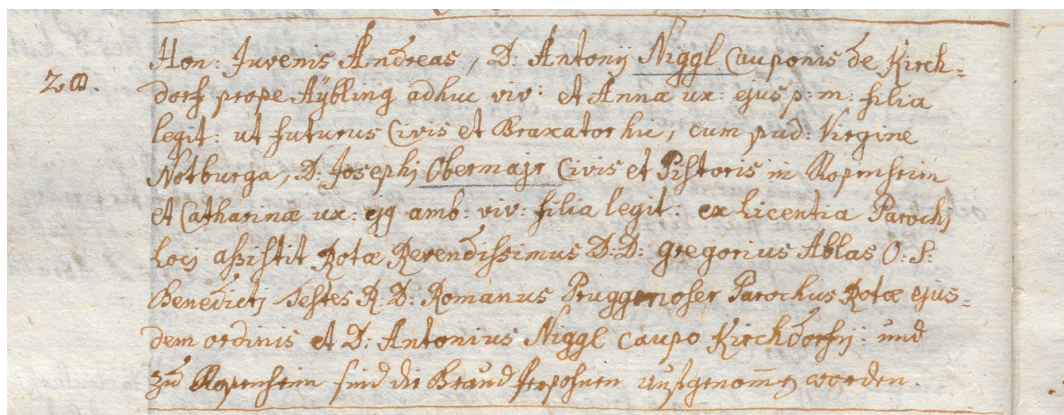 20.
Hon: Juvenis Andreas, D: Antonij Niggl Cauponis de Kirch=
dorf prope Aÿbling adhuc viv: et Annæ ux: ejus p: m: filia
legit: ut futurus Civis et Braxator hic, cum pud: Virgine
Notburga, D: Josephj Obermajr Civis et Pistoris in Rosenheim
et Catharinæ ux: ejq amb: viv: filia legit: ex licentia Parochj
locj assistit Rotæ Reverendissimus D:D: gregorius Ablas O: S:
Benedictj Testes R: D: Romanus Pruggmoser Parochus Rotæ ejus=
dem ordinis et D: Antonius Niggl caupo Kirchdorfij: und
zu Rosenheim sind die Braud Persohnen aufgenom̄en worden.